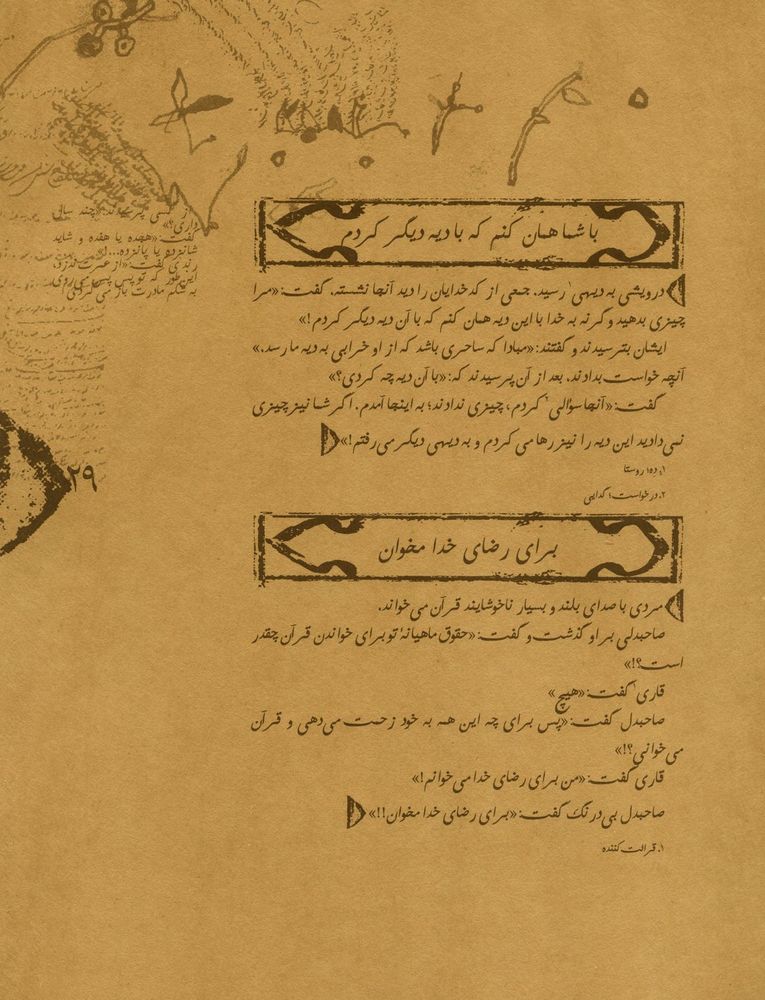 با شما همان کنم که با دیه دیگر کردم
درویشی به دیهی۱ رسید. جمعی از کدخدایان را دید آنجا نشسته. گفت: «مرا
چیزی بدهید و گرنه به خدا با این دیه همان کنم که با آن دیه دیگر کردم!»
ایشان بترسیدند و گفتند: «مبادا که ساحری باشد که از او خرابی به دیه ما رسد.»
آنچه خواست بدادند. بعد از آن پرسیدند که: «با آن دیه چه کردی؟»
گفت: «آنجا سؤالی۲ کردم، چیزی ندادند؛ به اینجا آمدم. اگر شما نیز چیزی
نمی‌دادید این دیه را نیز رها می‌کردم و به دیهی دیگر می‌رفتم!»
۱. ده؛ روستا
۲. درخواست؛ گدایی
برای رضای خدا مخوان
مردی با صدای بلند و بسیار ناخوشایند قرآن می‌خواند.
صاحبدلی بر او گذشت و گفت: «حقوق ماهیانهٔ تو برای خواندن قرآن چقدر
است؟!»
قاری۱ گفت: «هیچ»
صاحبدل گفت: «پس برای چه این همه به خود زحمت می‌دهی و قرآن
می‌خوانی؟!»
قاری گفت: «من برای رضای خدا می‌خوانم!»
صاحبدل بی‌درنگ گفت: «برای رضای خدا مخوان!!»
۱. قرائت کننده
از کسی پرسیدند: «چند سال
داری؟»
گفت: «هجده یا هفده و شاید
شانزده یا پانزده...!»
رندی گفت: «از عمرت دزدی،
این‌طور که تو پس پس می‌روی
به شکم مادرت باز می‌گردی!»
۲۹